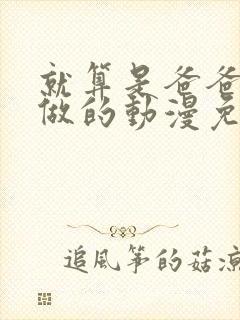 就算是爸爸
做的動漫免
追風筝的菇涼